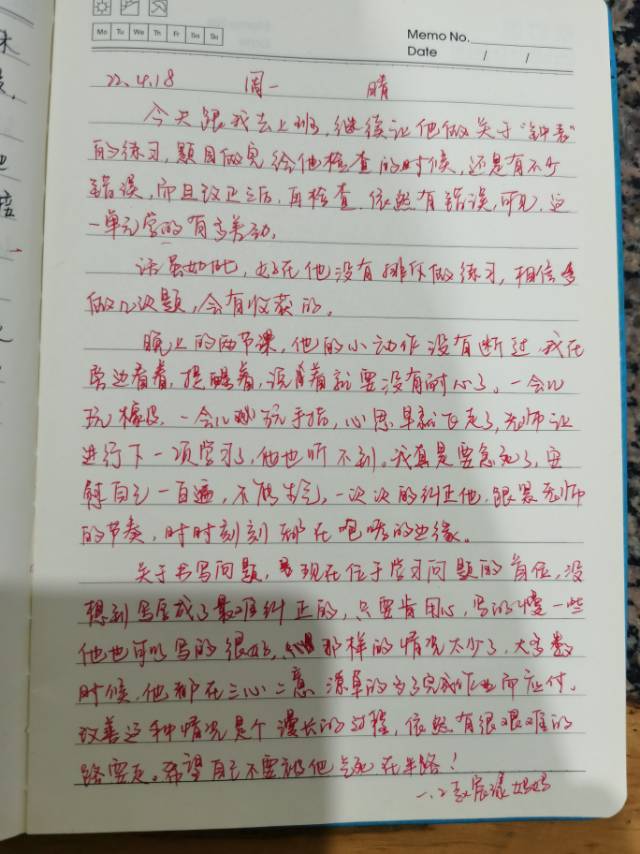 Mo Tu We Th Fr Sa Su
Memo No.
Date / /
22.4.18 周一 晴
今天跟我去上班，继续让他做关于“钟表”
的练习，题目做完给他检查的时候，还是有不少
错误，而且改正之后，再检查，依然有错误，可见，这
一单元学的有多差劲。
话虽如此，好在他没有排斥做练习，相信多
做几次题，会有收获的。
晚上的两节课，他的小动作没有断过，我在
旁边看着，提醒着，说着着就要没有耐心了，一会儿
玩橡皮，一会儿玩手指，心思早就飞走了，老师让
进行下一项学习了，他也听不到。我真是要急死了，安
慰自己一百遍，不能生气，一次次的纠正他，跟紧老师
的节奏，时时刻刻都在咆哮的边缘。
关于书写问题，现在位于学习问题的首位，没
想到写字成了最难纠正的，只要肯用心，写的慢一些
他也可以写的很好，那样的情况太少了，大多数
时候，他都在三心二意，潦草的为了完成作业而应付。
改善这种情况是个漫长的过程，依然有很艰难的
路要走。希望自己不要被他气死在半路！
妈妈